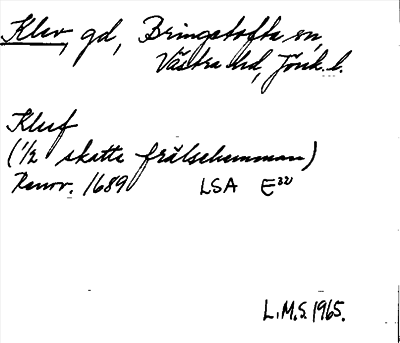 Klev, gd, Bringetofta sn,
Västra hd, Jönk. l.
Kluf
(1/2 skatte frälsehemman)
Renov. 1689 LSA E32
L.M.S. 1965.